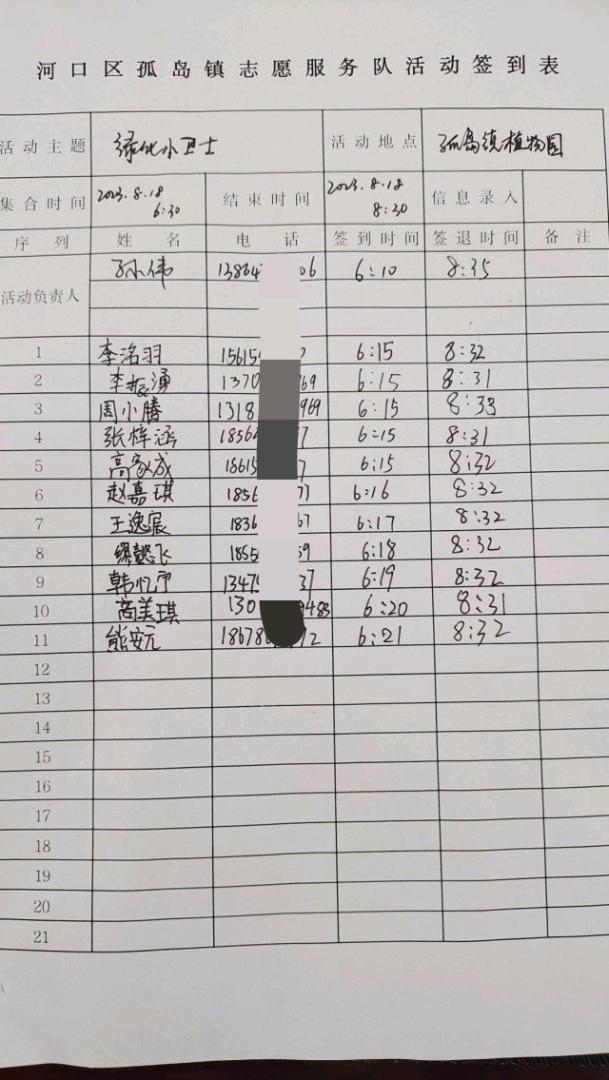 河口区孤岛镇志愿服务队活动签到表
活动主题 绿化小卫士 活动地点 孤岛镇植物园
集合时间 2023.8.18 6:30 结束时间 2023.8.18 8:30 信息录入
序列 姓名 电话 签到时间 签退时间 备注
活动负责人 孙伟 13864 06 6:10 8:35
1 李洺羽 15615 6:15 8:32
2 李振湧 1370 69 6:15 8:31
3 周小腾 1318 969 6:15 8:33
4 张梓涵 1856 7 6:15 8:31
5 高家成 18615 7 6:15 8:32
6 赵嘉琪 1856 77 6:16 8:32
7 王逸宸 1836 67 6:17 8:32
8 缪懿飞 1855 59 6:18 8:32
9 韩忆宁 1347 37 6:19 8:32
10 高美琪 130 9483 6:20 8:31
11 熊安元 18678 72 6:21 8:32
12
13
14
15
16
17
18
19
20
21